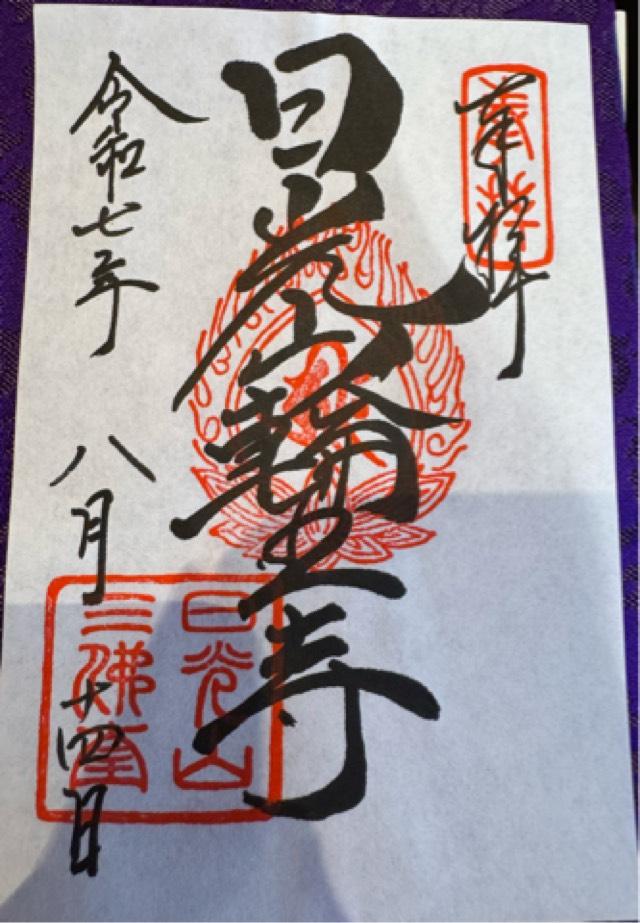 奉拝
日光山輪王寺
令和七年八月十四日
日光山
三佛堂